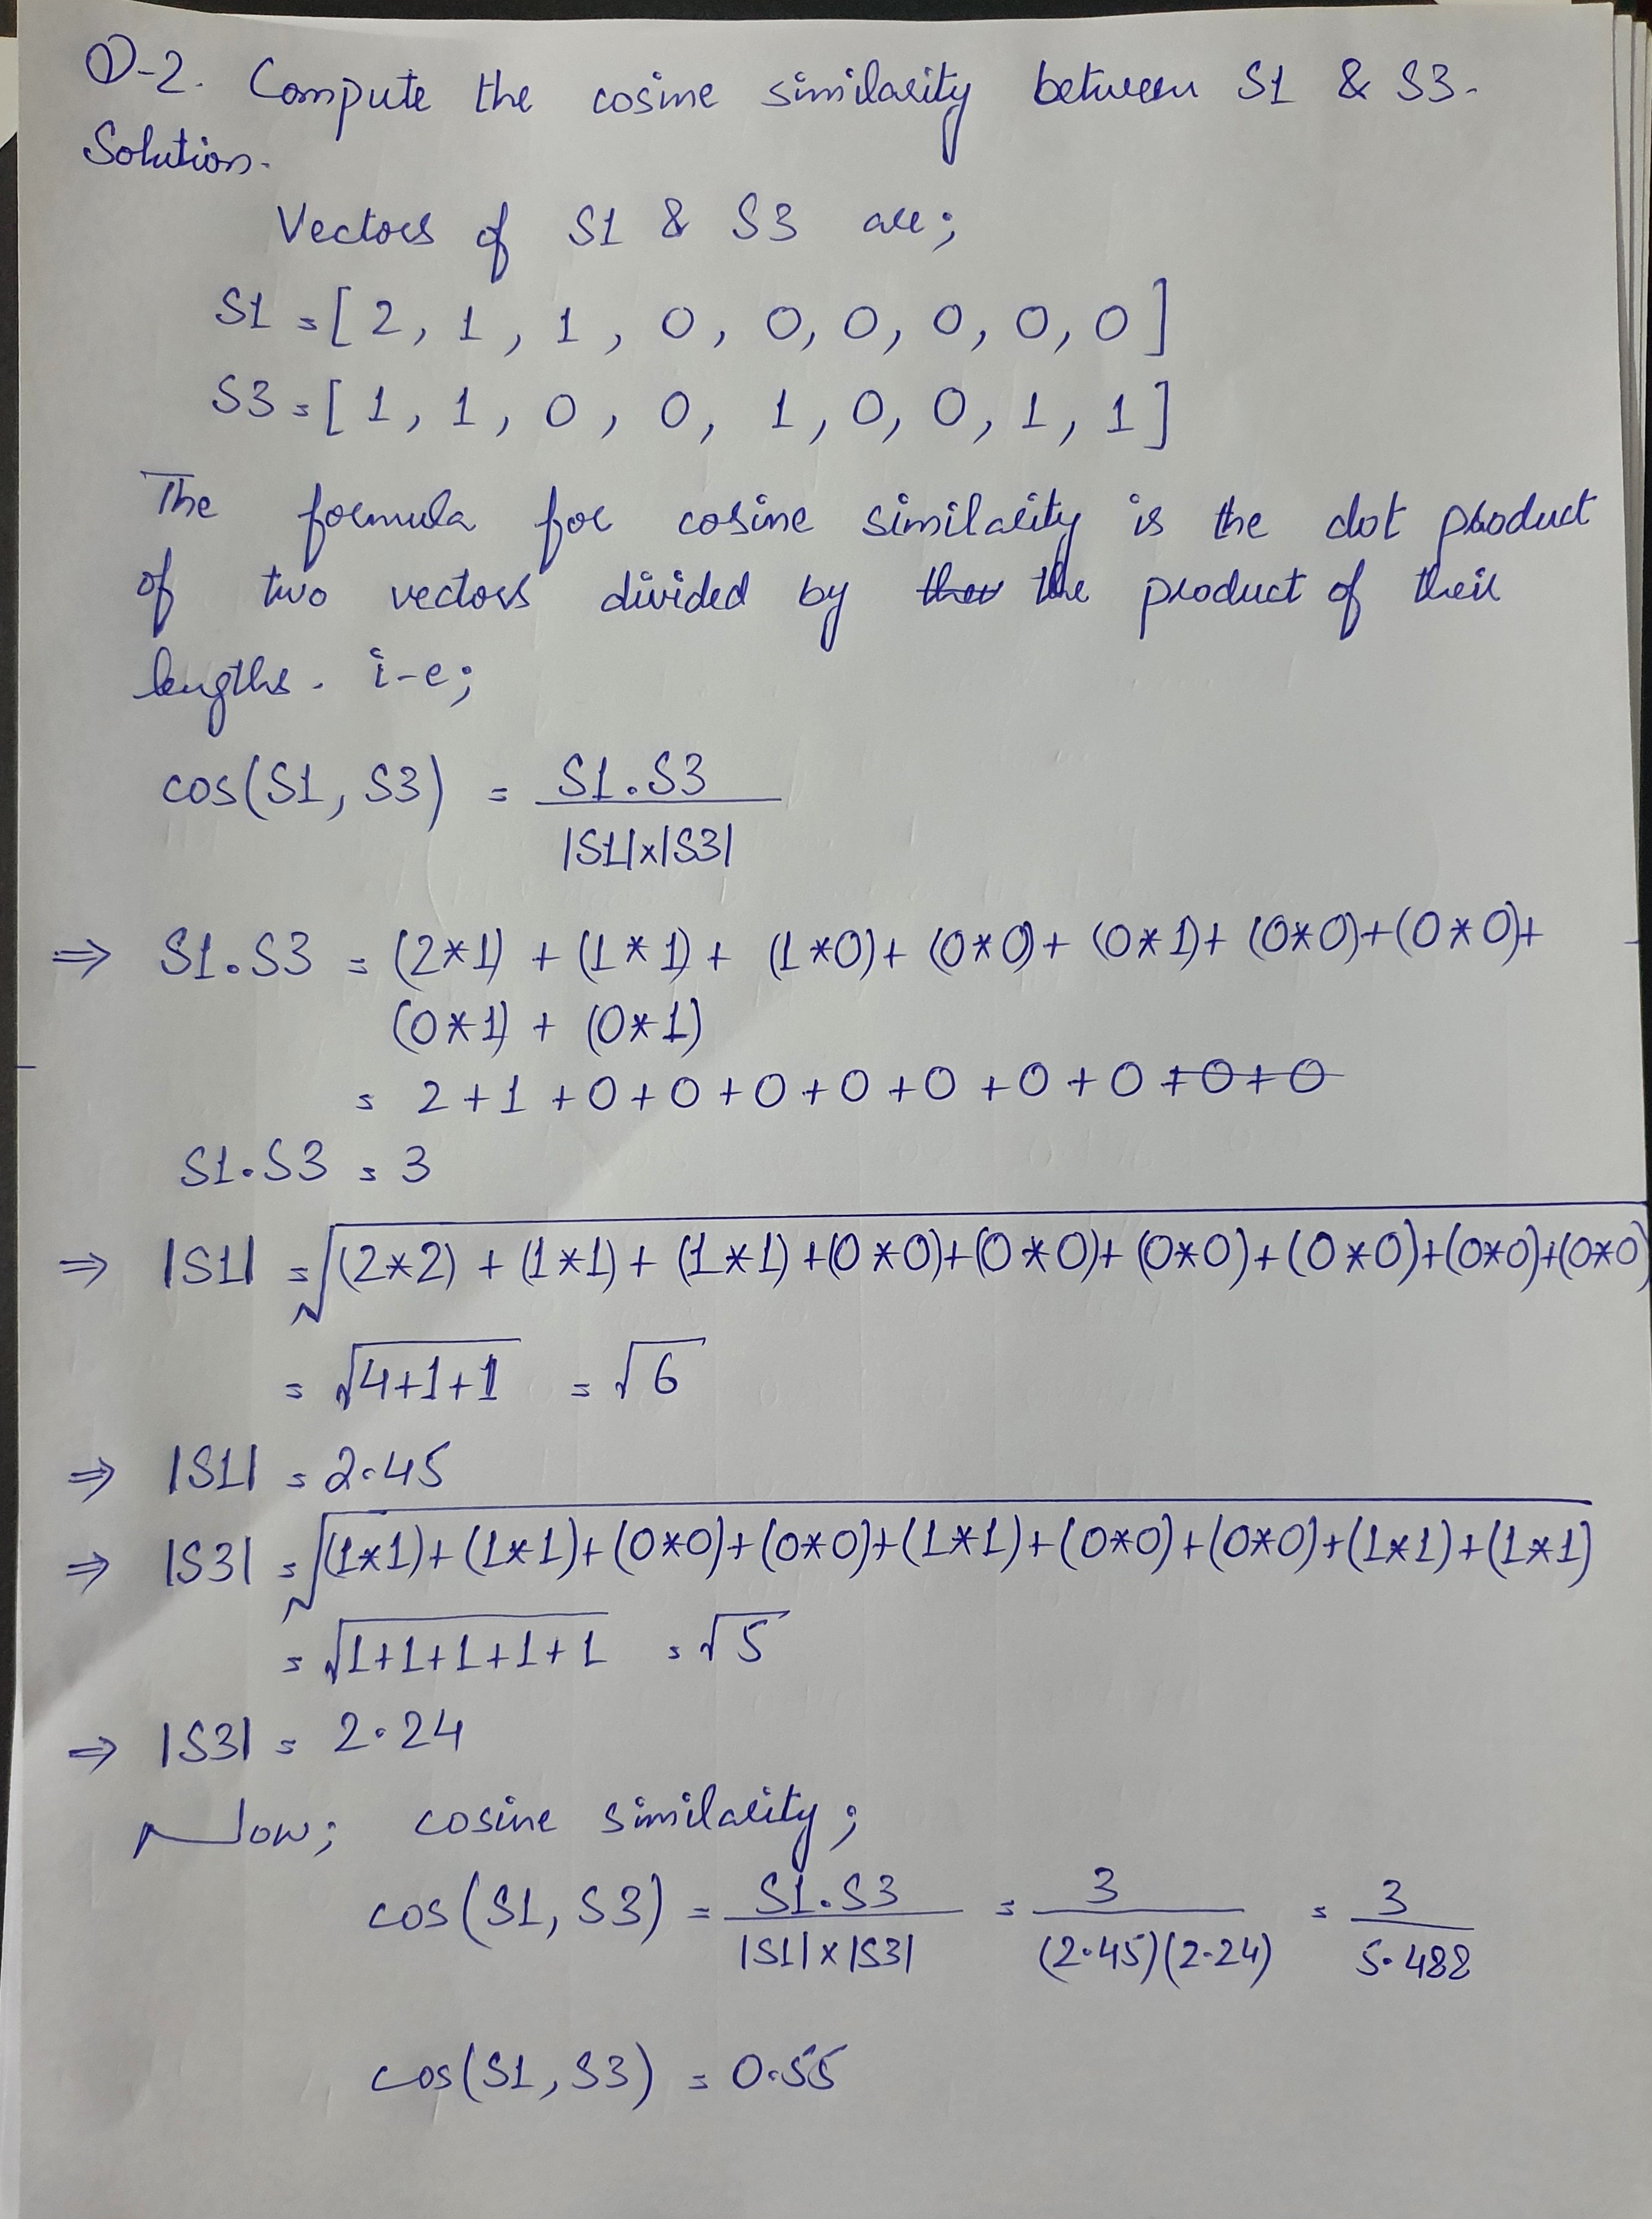 Q-2. Compute the cosine similarity between S1 & S3.
Solution.
Vectors of S1 & S3 are;
S1 = [2, 1, 1, 0, 0, 0, 0, 0, 0]
S3 = [1, 1, 0, 0, 1, 0, 0, 1, 1]
The formula for cosine similarity is the dot product
of two vectors divided by the product of their
lengths. i-e;
cos(S1, S3) = S1.S3 / |S1|x|S3|
⇒ S1.S3 = (2*1) + (1*1) + (1*0) + (0*0) + (0*1) + (0*0) + (0*0) +
(0*1) + (0*1)
= 2+1+0+0+0+0+0+0+0 +0+0
S1.S3 = 3
⇒ |S1| = √(2*2) + (1*1) + (1*1) + (0*0) + (0*0) + (0*0) + (0*0) + (0*0) + (0*0)
= √4+1+1 = √6
⇒ |S1| = 2.45
⇒ |S3| = √(1*1) + (1*1) + (0*0) + (0*0) + (1*1) + (0*0) + (0*0) + (1*1) + (1*1)
= √1+1+1+1+1 = √5
⇒ |S3| = 2.24
Now; cosine similarity;
cos(S1, S3) = S1.S3 / |S1|x|S3| = 3 / (2.45)(2.24) = 3 / 5.488
cos(S1, S3) = 0.55